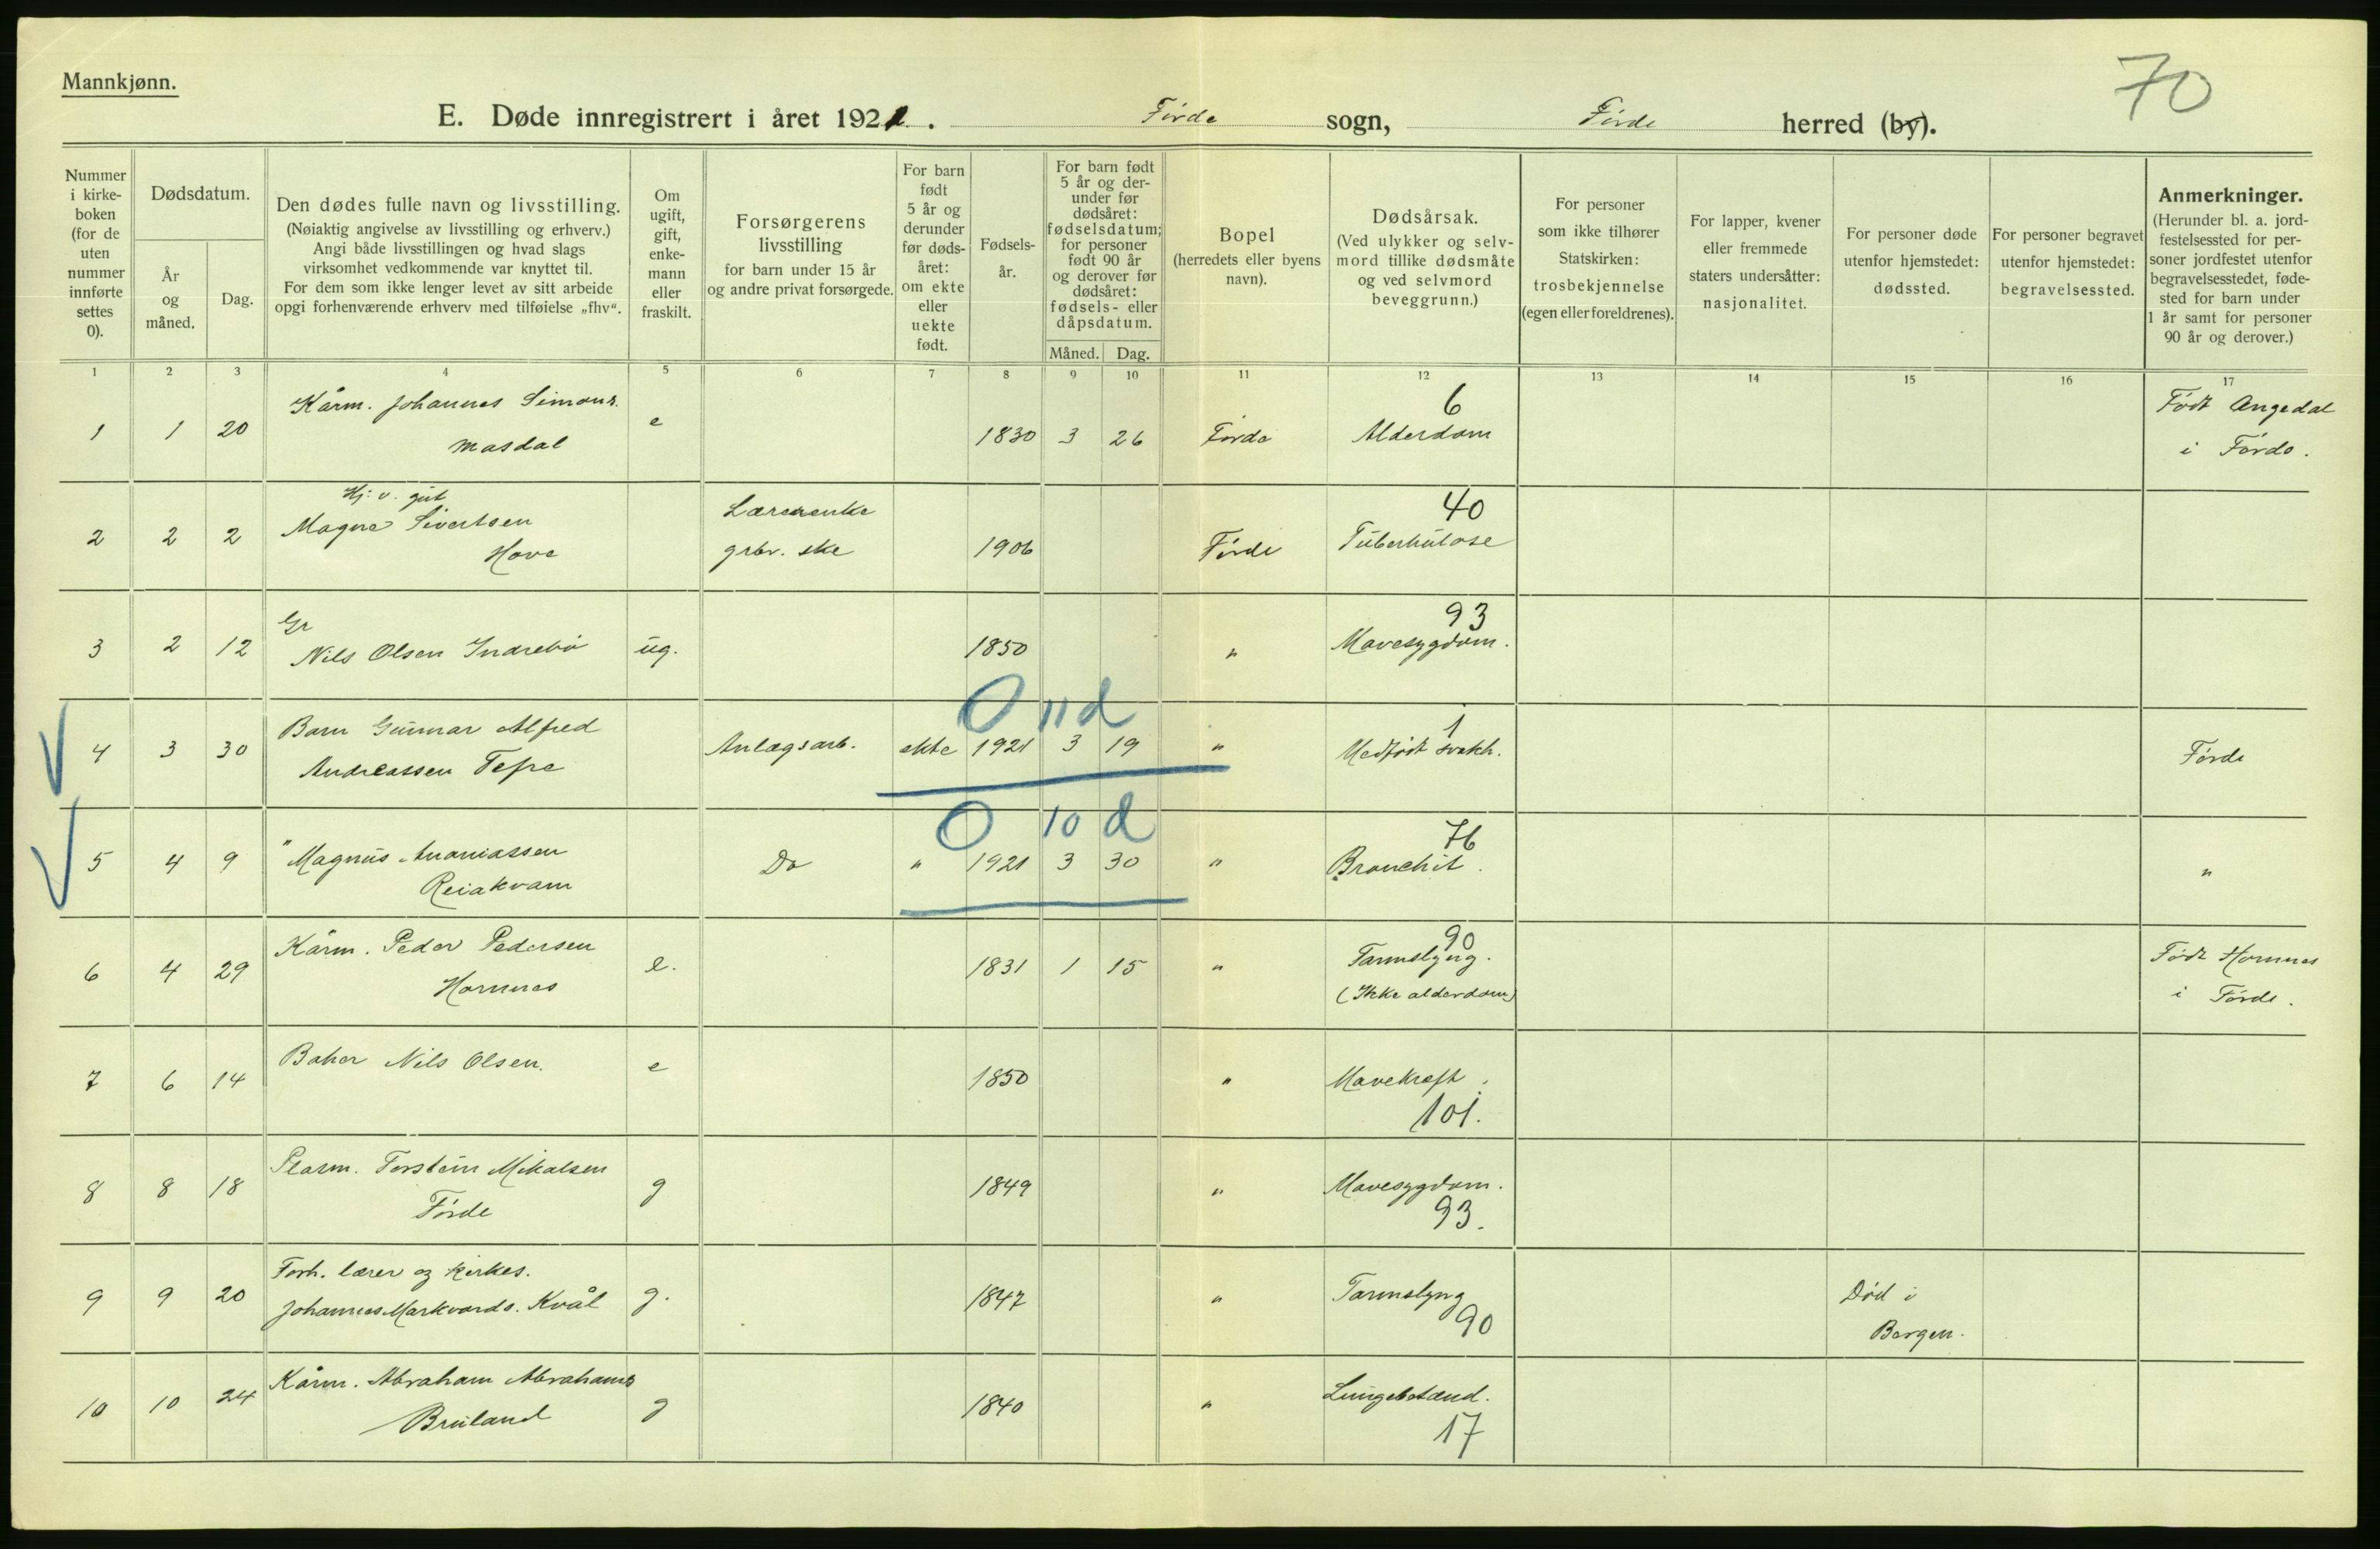 Mannkjønn.
70
E. Døde innregistrert i året 1921. Førde sogn, Førde herred (by).
Nummer i kirke-boken (for de uten nummer innførte settes 0).
Dødsdatum.
År og måned.
Dag.
Den dødes fulle navn og livsstilling.
(Nøiaktig angivelse av livsstilling og erhverv.)
Angi både livsstillingen og hvad slags
virksomhet vedkommende var knyttet til.
For dem som ikke lenger levet av sitt arbeide
opgi forhenværende erhverv med tilføielse „fhv“.
Om ugift, gift, enke-mann eller fraskilt.
Forsørgerens livsstilling
for barn under 15 år
og andre privat forsørgede.
For barn født 5 år og derunder før døds-året: om ekte eller uekte født.
Fødsels-år.
For barn født 5 år og der-under før dødsåret: fødselsdatum; for personer født 90 år og derover før dødsåret: fødsels- eller dåpsdatum.
Måned. Dag.
Bopel
(herredets eller byens navn).
Dødsårsak.
(Ved ulykker og selv-mord tillike dødsmåte og ved selvmord beveggrunn.)
For personer som ikke tilhører Statskirken: trosbekjennelse (egen eller foreldrenes).
For lapper, kvener eller fremmede staters undersåtter: nasjonalitet.
For personer døde utenfor hjemstedet: dødssted.
For personer begravet utenfor hjemstedet: begravelsessted.
Anmerkninger.
(Herunder bl. a. jord-festelsessted for per-soner jordfestet utenfor begravelsesstedet, føde-sted for barn under 1 år samt for personer 90 år og derover.)
1 2 3 4 5 6 7 8 9 10 11 12 13 14 15 16 17
1 1 20 Kårm. Johannes Simons. Masdal e 1830 3 26 Førde 6 Alderdom Født Angedal i Førde.
2 2 2 Hj. v. gut Magne Sivertsen Hove Lærerenke grbr. ske 1906 Førde 40 Tuberkulose
3 2 12 Gr Nils Olsen Indrebø ug. 1850 " 93 Mavesygdom.
0 11 d
4 3 30 Barn Gunnar Alfred Andreassen Tefre Anlægsarb. ekte 1921 3 19 " 1 Medfødt svakh. Førde
0 10 d
5 4 9 " Magnus Ananiassen Reiakvam Do " 1921 3 30 " 76 Bronchit. "
6 4 29 Kårm. Peder Pedersen Hornnes e. 1831 1 15 " 90 Tarmslyng. (Ikke alderdom) Født Hornnes i Førde.
7 6 14 Baker Nils Olsen. e 1850 " Mavekræft. 101.
8 8 18 Plasm. Torstein Mikalsen Førde g 1849 " Mavesygdom. 93.
9 9 20 Forh. lærer og kirkes. Johannes Markvards. Kvål g. 1847 " Tarmslyng 90 Død i Bergen.
10 10 24 Kårm. Abraham Abrahams Bruland g 1840 " Lungebetænd. 17